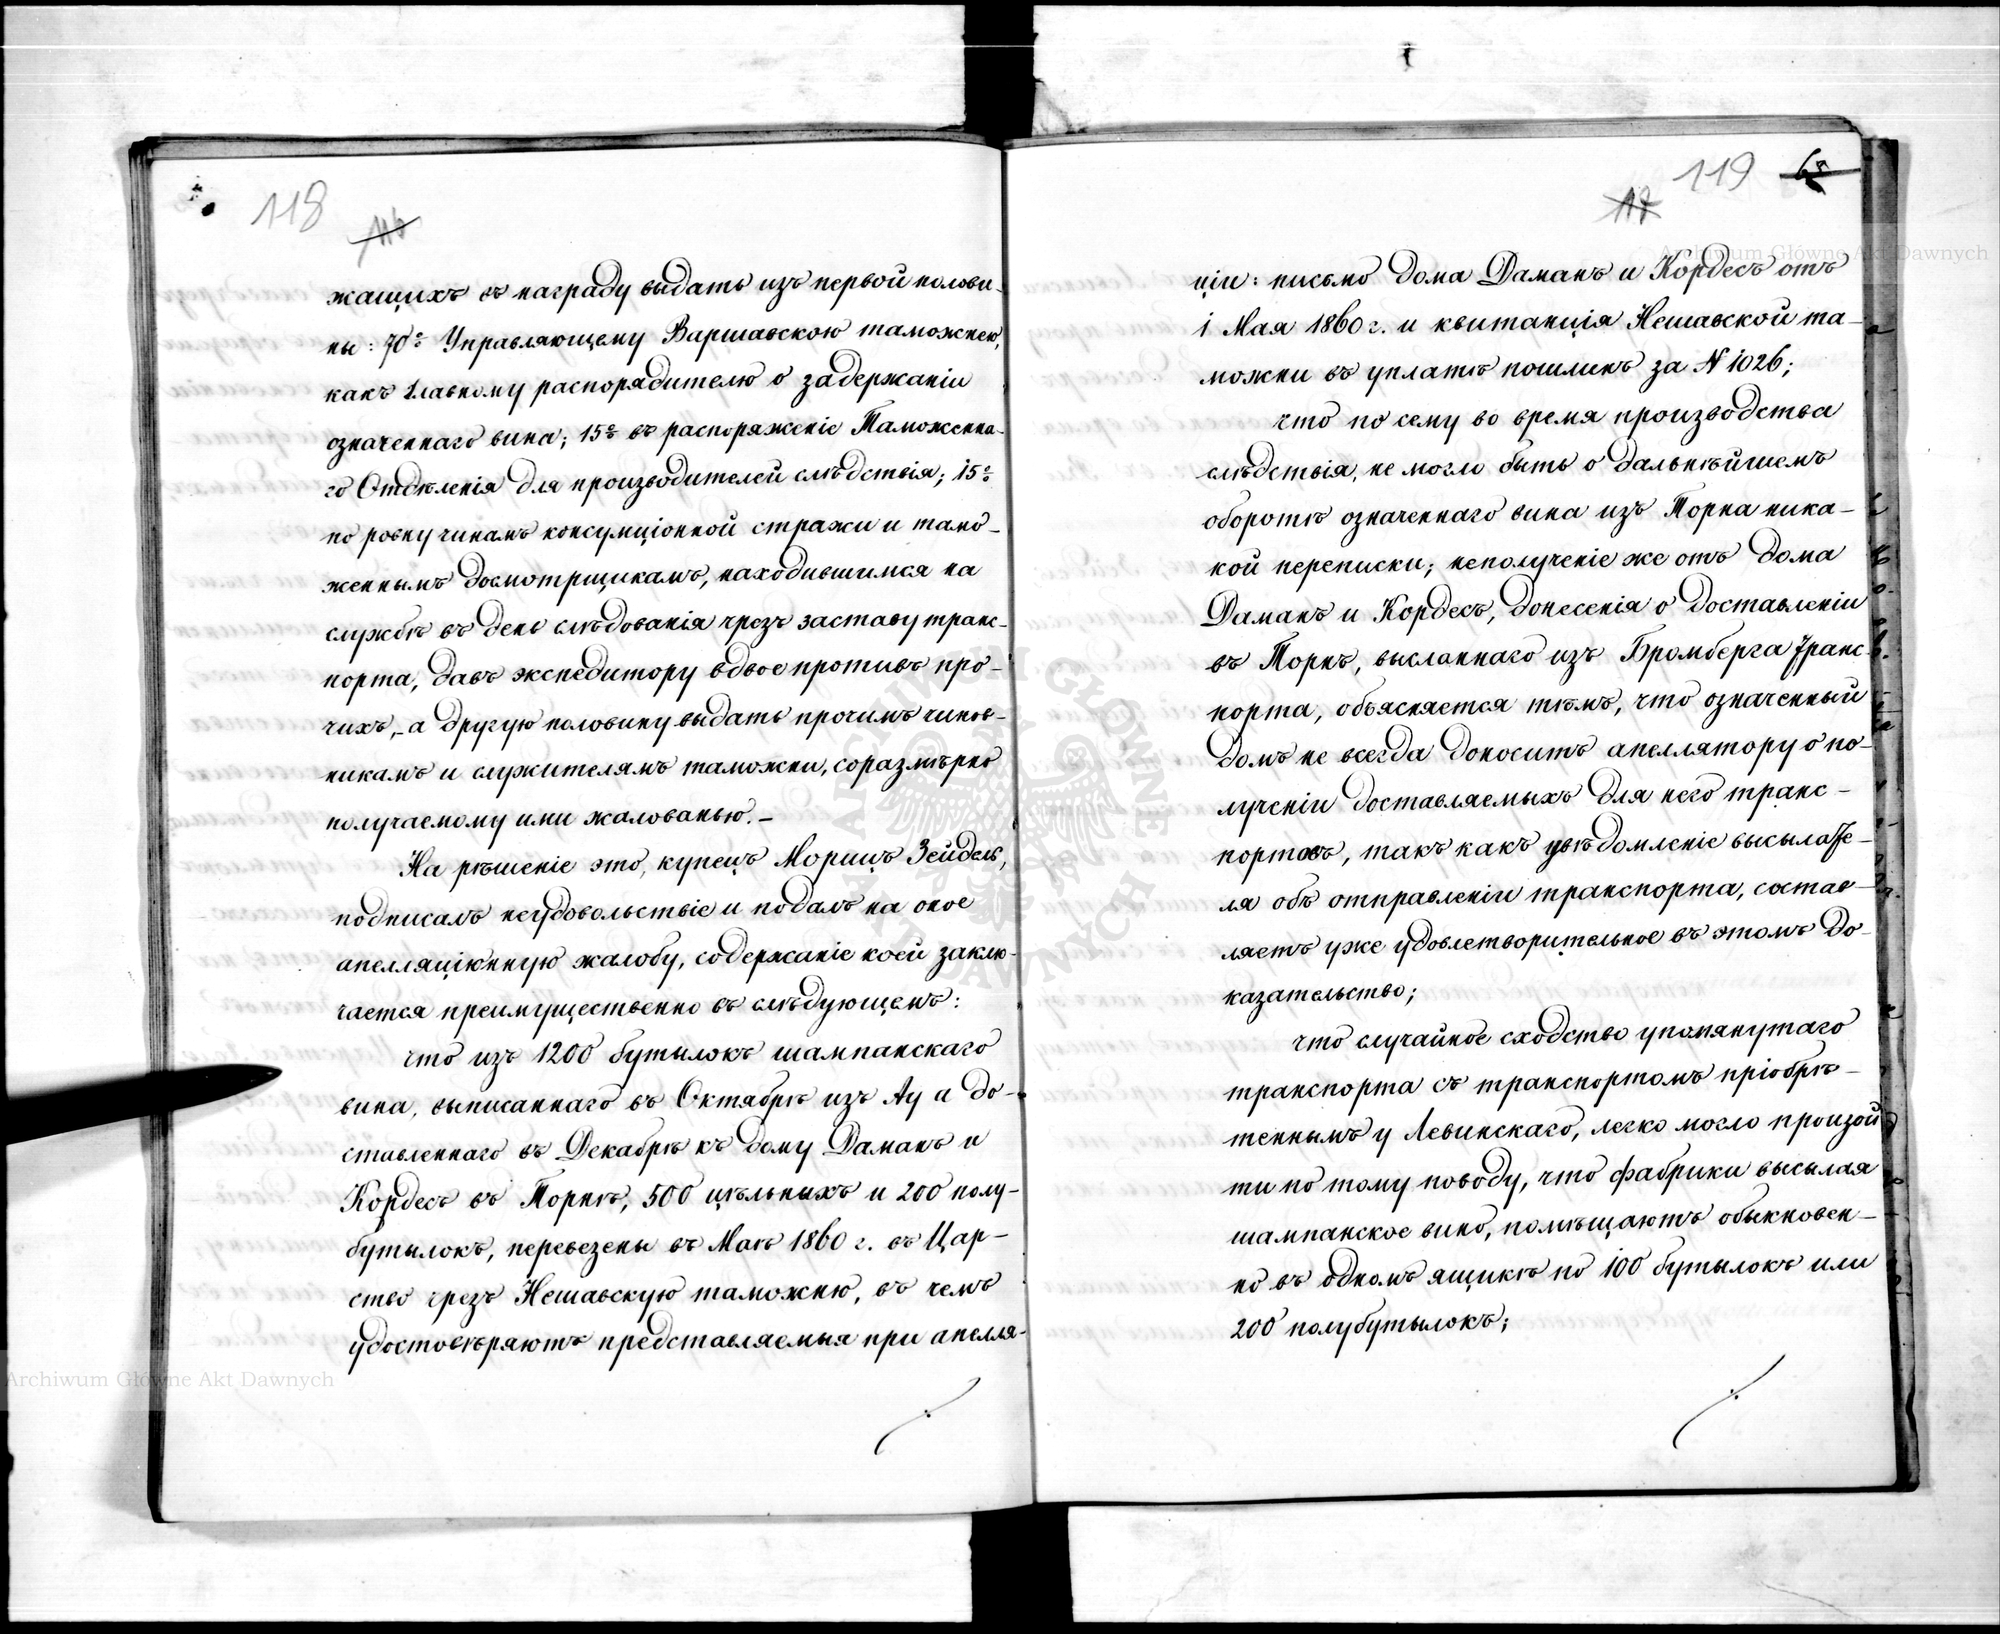 118
116
жащихъ въ награду выдать изъ первой полови-
ны: 70% Управляющему Варшавскою таможнею,
какъ главному распорядителю о задержаніи
означеннаго вина; 15% въ распоряженіе Таможенна-
го Отдѣленія для производителей слѣдствія; 15%
по ровну чинамъ консумціонной стражи и тамо-
женнымъ досмотрщикамъ, находившимся на
службѣ въ день слѣдованія чрезъ заставу транс-
порта, давъ экспедитору вдвое противъ про-
чихъ, - а другую половину выдать прочимъ чинов-
никамъ и служителямъ таможни, соразмѣрно
получаемому ими жалованью. -
На рѣшеніе это, купецъ Морицъ Зейдель,
подписалъ неудовольствіе и подалъ на оное
апелляціонную жалобу, содержаніе коей заклю-
чается преимущественно въ слѣдующемъ:
что изъ 1200 бутылокъ шампанскаго
вина, выписаннаго въ Октябрѣ изъ Ау а до-
ставленнаго въ Декабрѣ къ дому Даманъ и
Кордесъ въ Торнѣ, 500 цѣльныхъ и 200 полу-
бутылокъ, перевезены въ Маѣ 1860 г. въ Цар-
ство чрезъ Нешавскую таможню, въ чемъ
удостовѣряютъ представляемыя при апелля-
119
65
117
ціи: письмо дома Даманъ и Кордесъ отъ
1 Мая 1860 г. и квитанція Нешавской та-
можни въ уплатѣ пошлинъ за N 1026;
что по сему во время производства
слѣдствія, не могло быть о дальнѣйшемъ
оборотѣ означеннаго вина изъ Торна ника-
кой переписки; неполученіе же отъ дома
Даманъ и Кордесъ, донесенія о доставленіи
въ Торнъ, высланнаго изъ Бромберга транс-
порта, объясняется тѣмъ, что означенный
домъ не всегда доноситъ апеллятору о по-
лученіи доставляемыхъ для него транс-
портовъ, такъ какъ увѣдомленіе высылате-
ля объ отправленіи транспорта, состав-
ляетъ уже удовлетворительное въ этомъ до-
казательство;
что случайное сходство упомянутаго
транспорта съ транспортомъ пріобрѣ-
теннымъ у Левинскаго, легко могло произой
ти по тому поводу, что фабрики высылая
шампанское вино, помѣщаютъ обыкновен-
но въ одномъ ящикѣ по 100 бутылокъ или
200 полубутылокъ;
Archiwum Główne Akt Dawnych
Archiwum Główne Akt Dawnych
ARCHIWUM GŁÓWNE AKT DAWNYCH